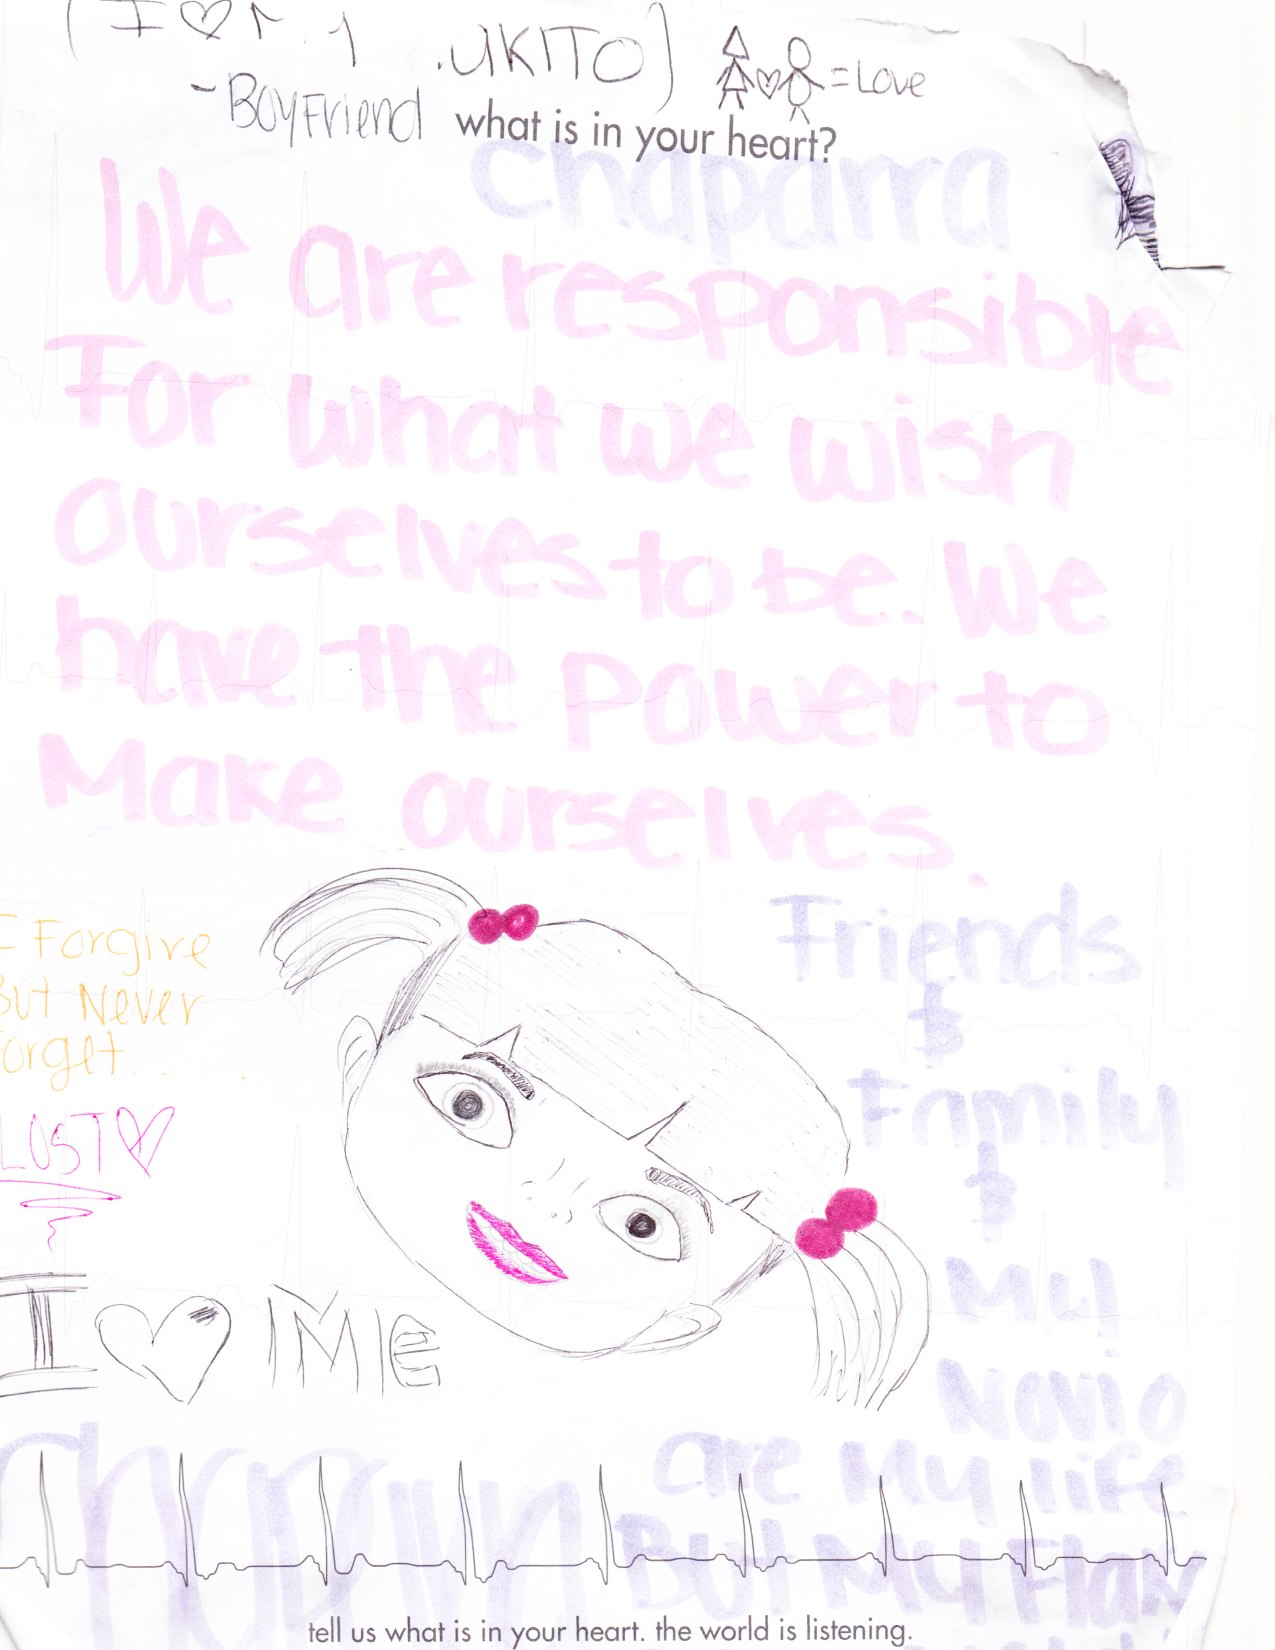 (I ♡ . UKITO)
- Boyfriend
= Love
what is in your heart?
Chaparra
We are responsible
For what we wish
ourselves to be. We
have the Power to
Make ourselves.
I Forgive
But Never
Forget...
LOST ♡
I ♡ ME
Friends
&
Family
&
My
Novio
are My life
But My Flaw
tell us what is in your heart. the world is listening.